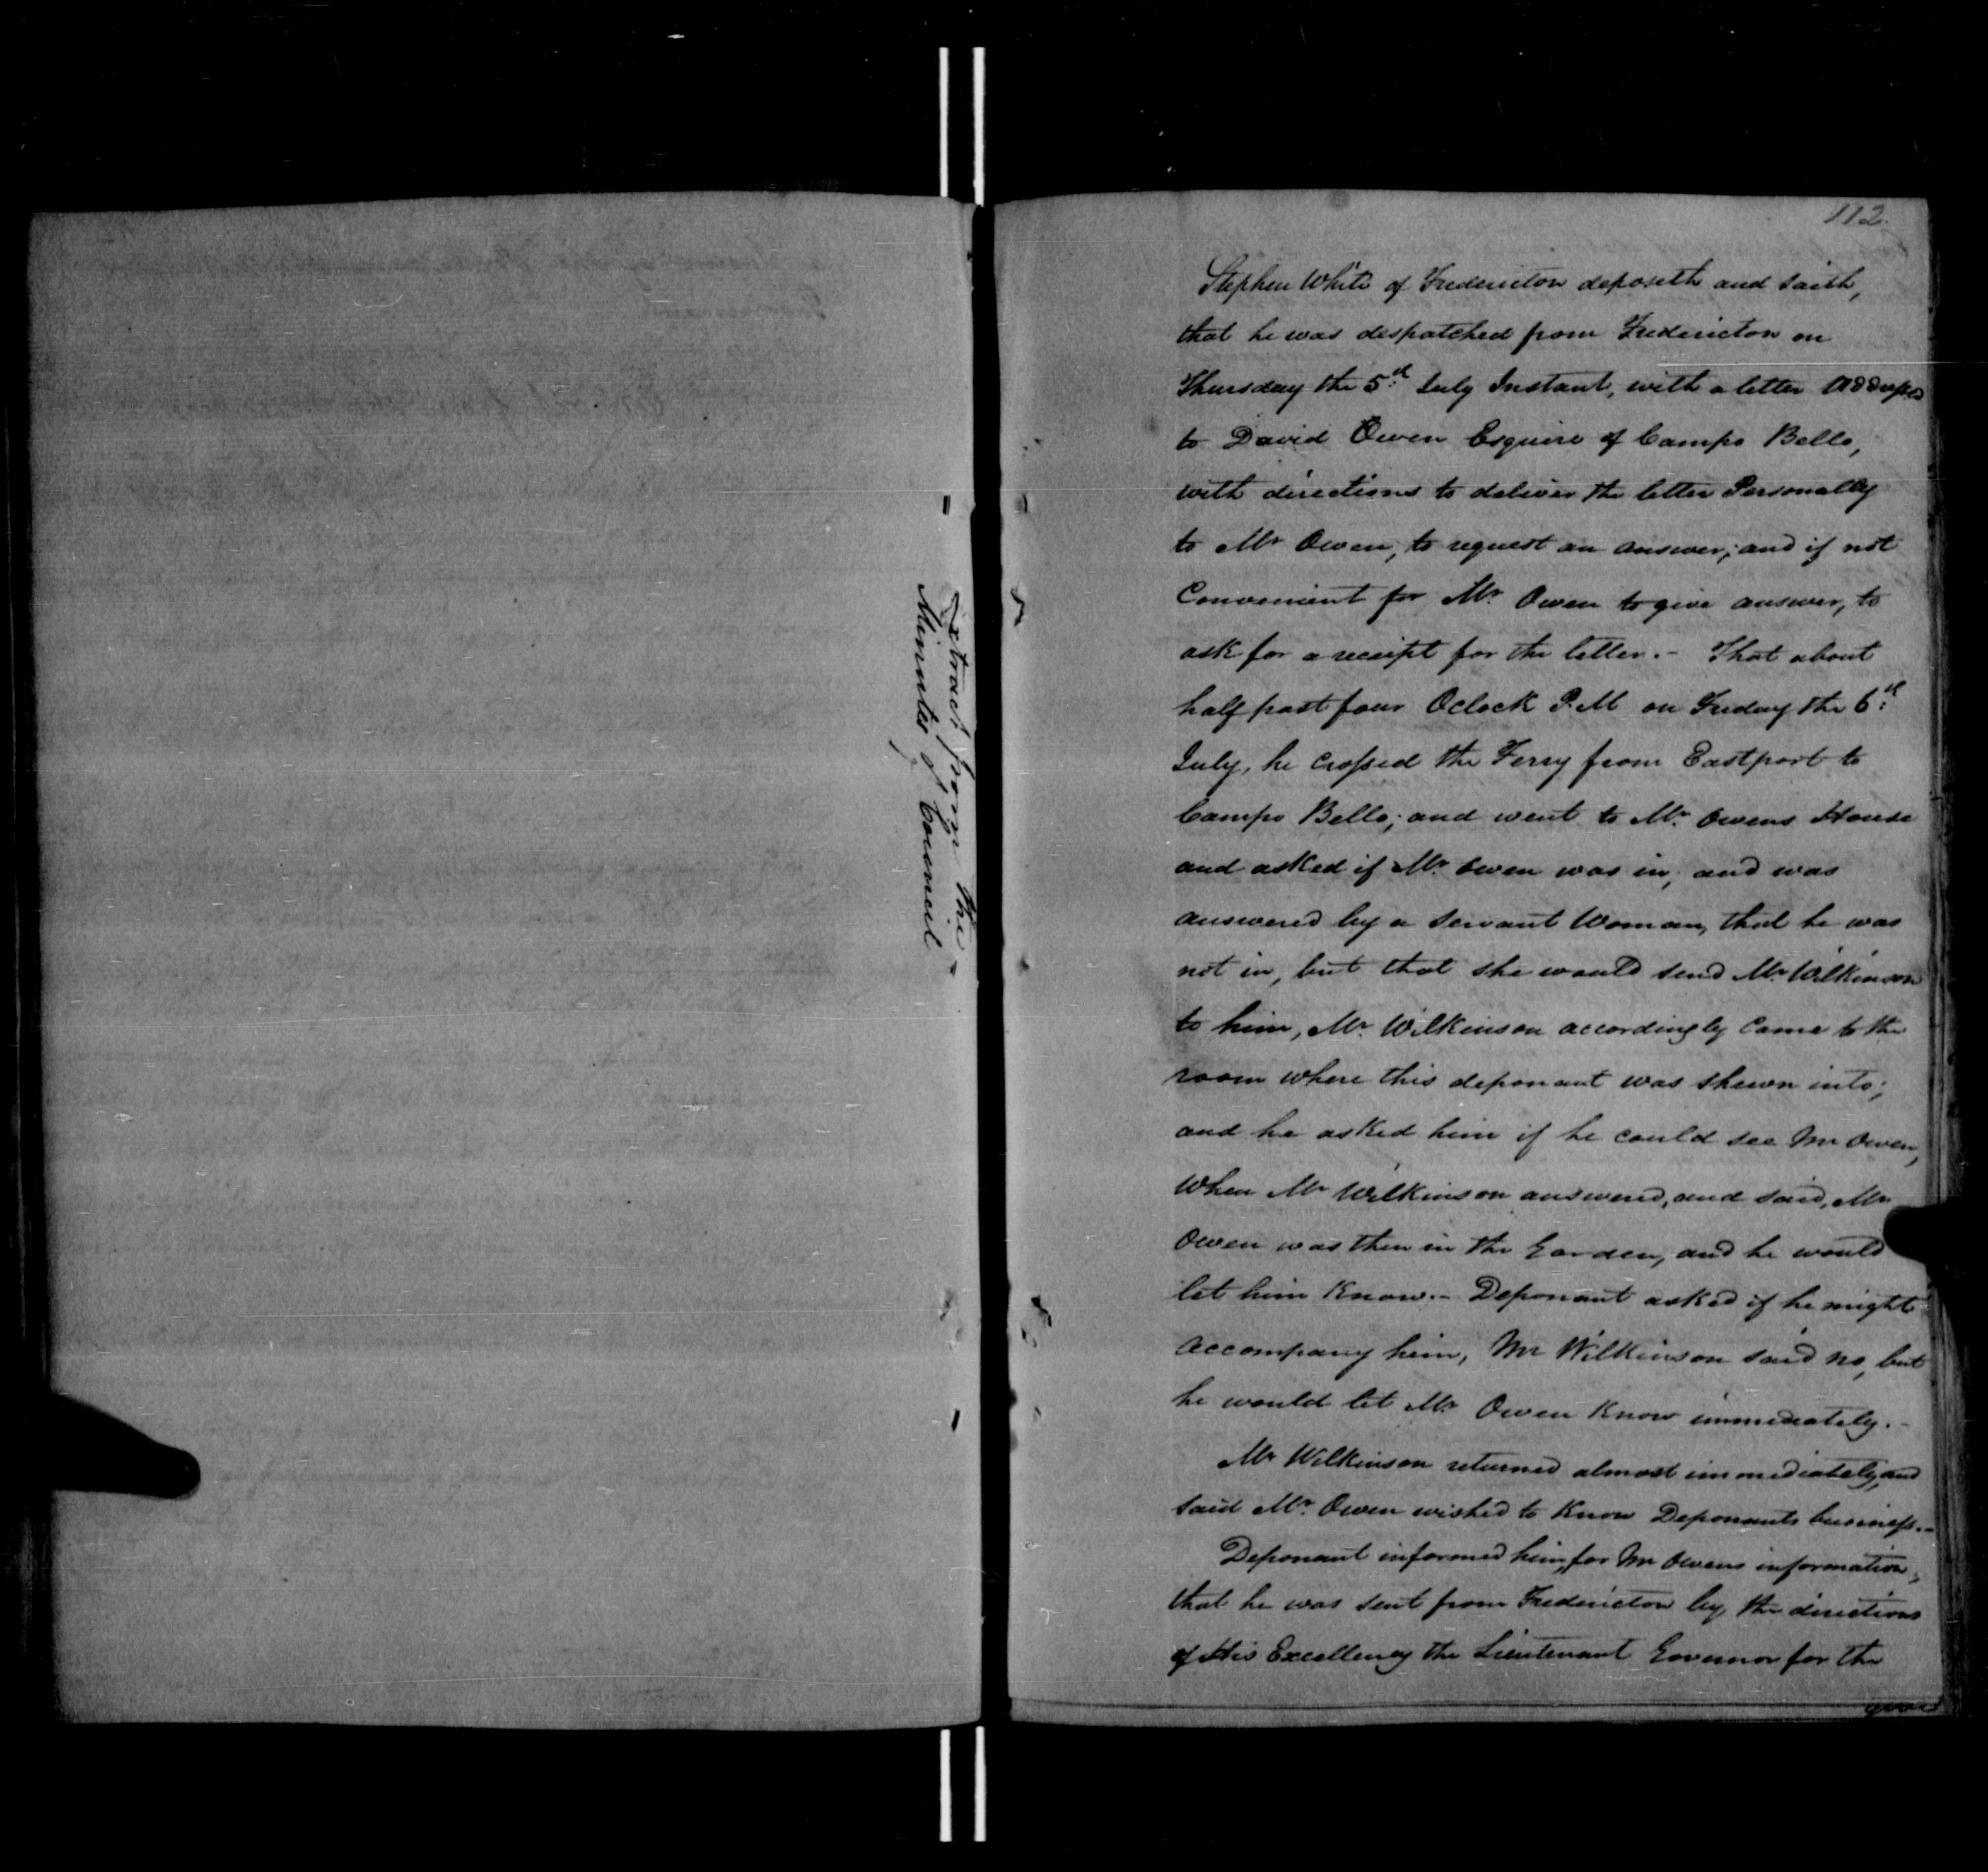 Extract from the
Minutes of Council
112.
Stephen White of Fredericton deposeth and saith,
that he was despatched from Fredericton on
Thursday the 5th July Instant, with a letter Addressed
to David Owen Esquire of Campo Bello,
with directions to deliver the letter Personally
to Mr Owen, to request an answer; and if not
Convenient for Mr. Owen to give answer, to
ask for a receipt for the letter.- That about
half past four Oclock P.M on Friday the 6th
July, he crossed the Ferry from Eastport to
Campo Bello; and went to Mr. Owens House
and asked if Mr. Owen was in, and was
answered by a Servant Woman, that he was
not in, but that she would send Mr. Wilkinson
to him, Mr. Wilkinson accordingly came to the
room where this deponant was shewn into;
and he asked him if he could see Mr Owen,
When Mr Wilkinson answered, and said, Mr
Owen was then in the Garden, and he would
let him Know.- Deponant asked if he might
accompany him, Mr Wilkinson said no, but
he would let Mr Owen Know immediately.-
Mr Wilkinson returned almost immediately, and
said Mr. Owen wished to Know Deponants business.-
Deponant informed him, for Mr Owens information,
that he was sent from Fredericton by the directions
of His Excellency the Lieutenant Governor for the